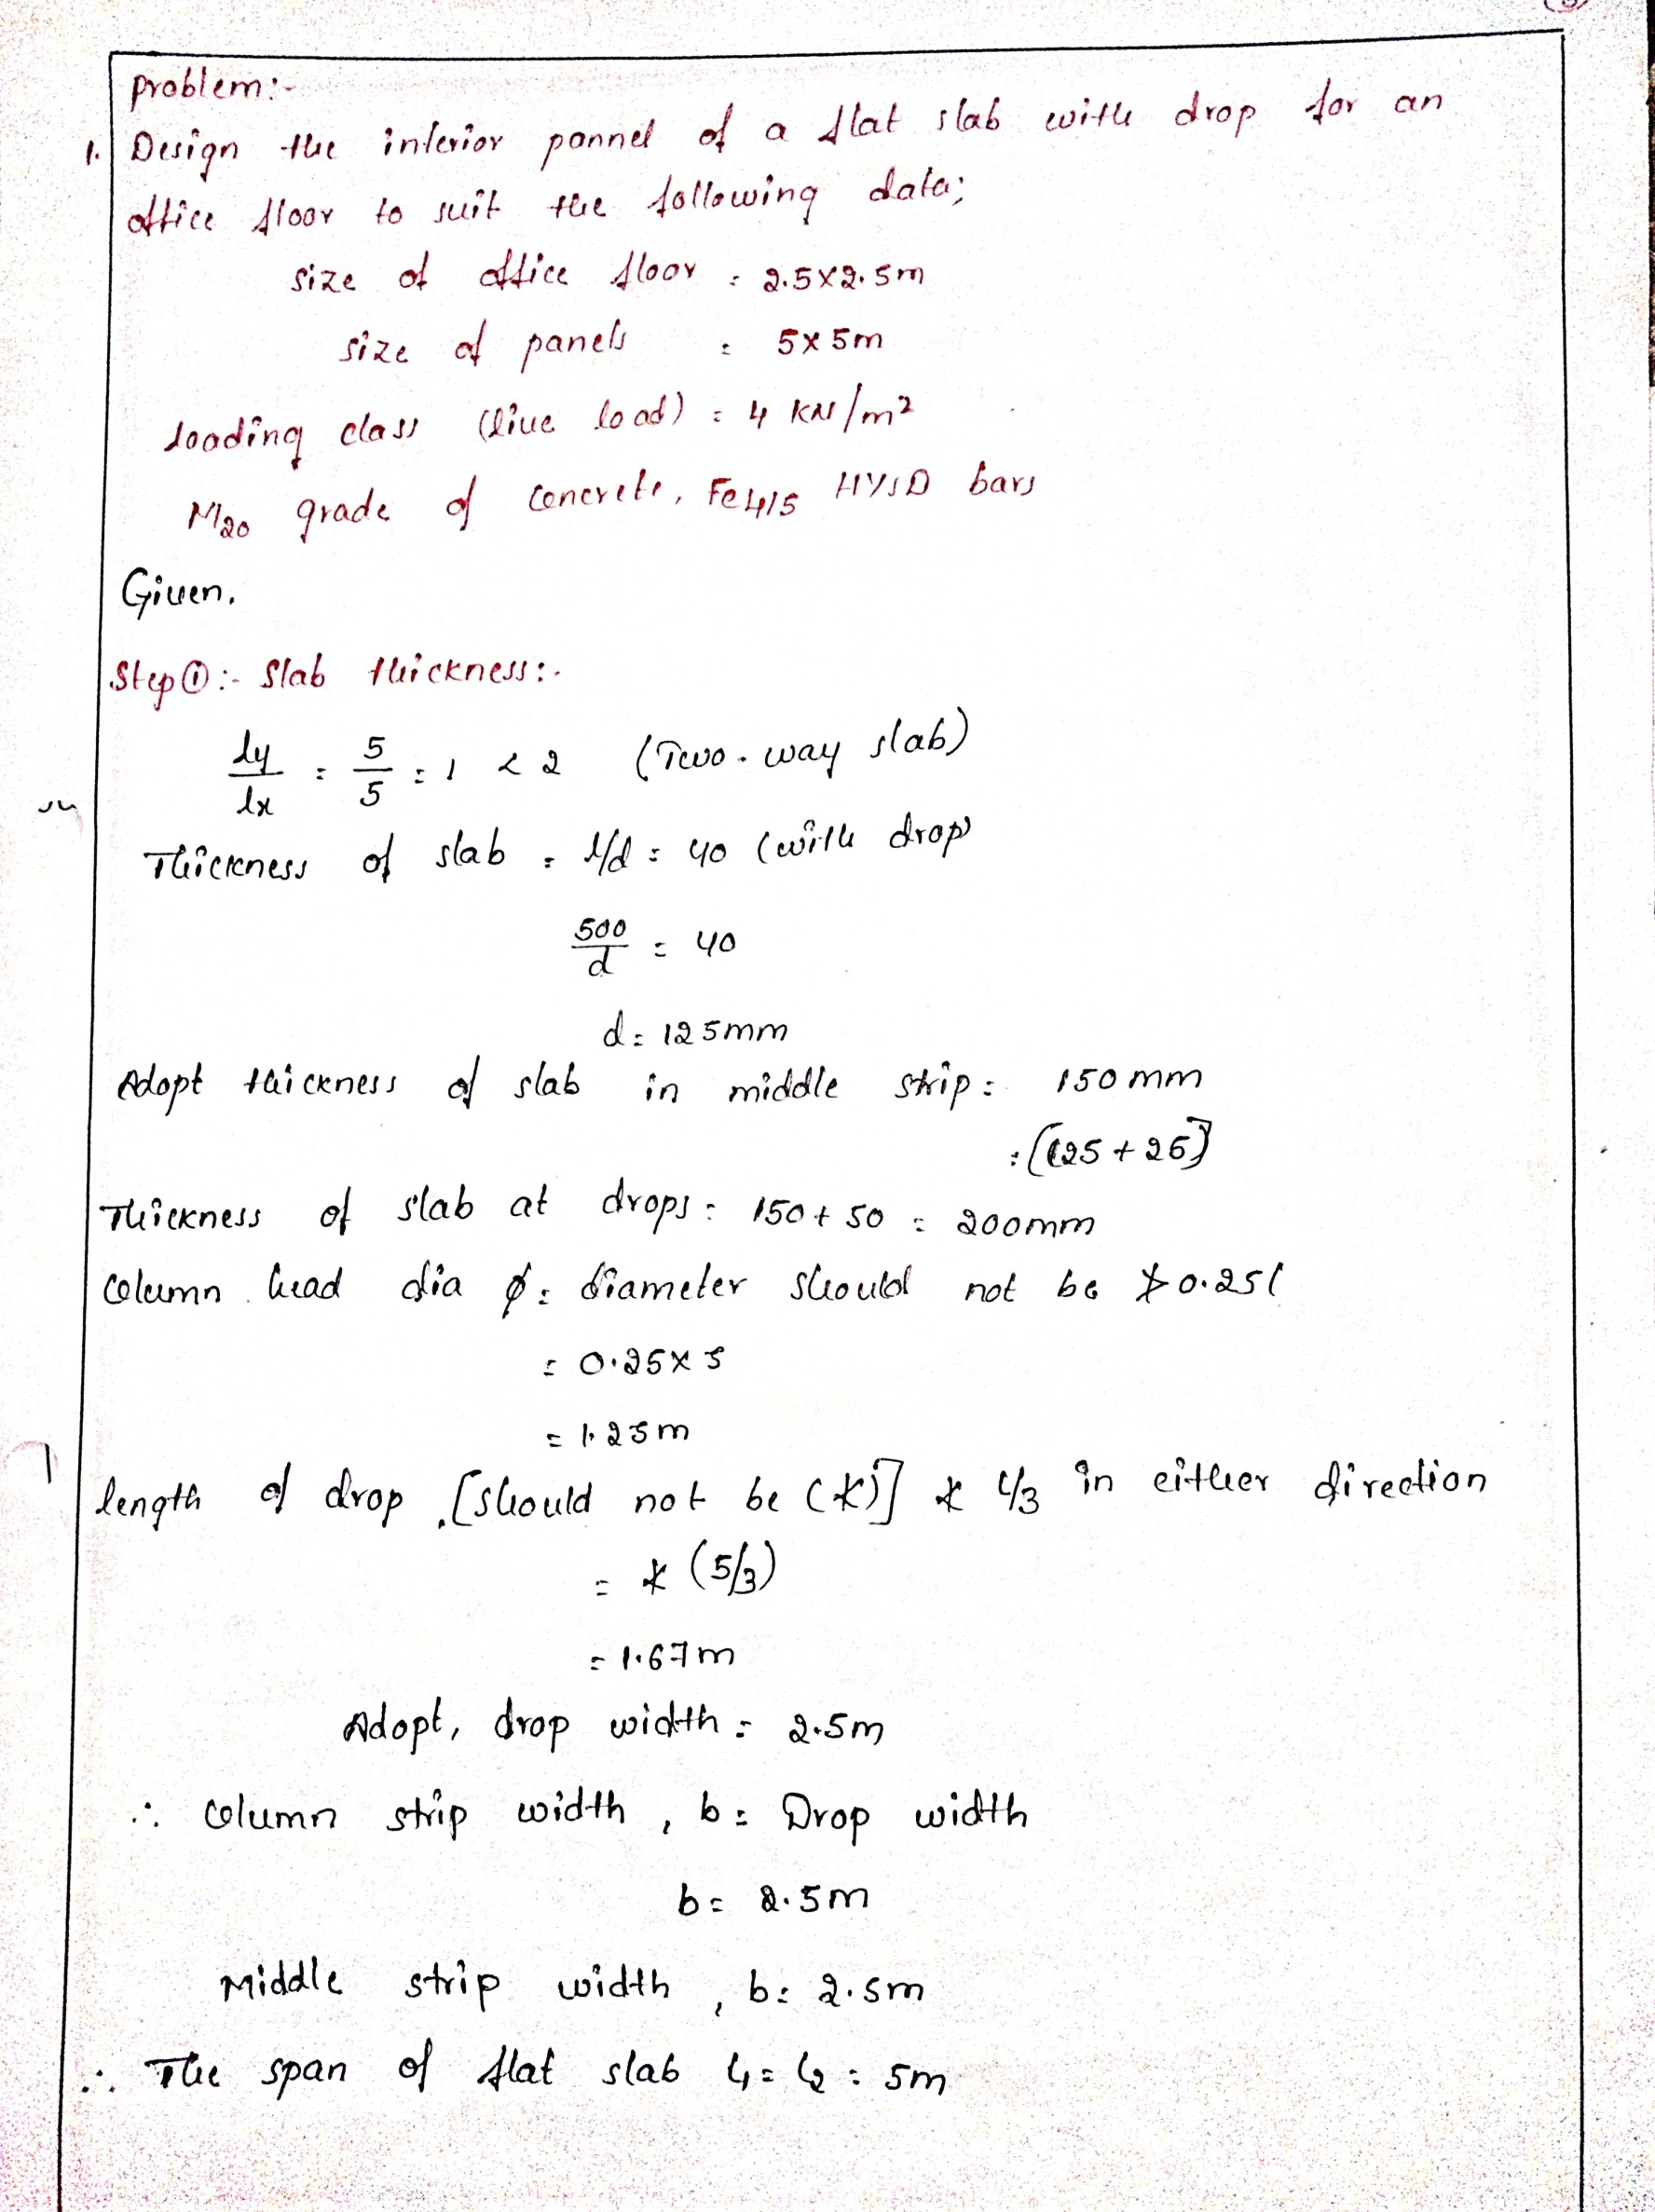 Problem:-
1. Design the interior pannel of a flat slab with drop for an
office floor to suit the following data;
size of office floor = 2.5x2.5m
size of panels = 5x5m
loading class (live load) = 4 KN/m²
M20 grade of concrete, Fe415 HYSD bars
Given.
Step①:- Slab thickness:-
ly/lx = 5/5 = 1 < 2 (Two-way slab)
Thickness of slab = l/d = 40 (with drop)
500/d = 40
d = 125mm
Adopt thickness of slab in middle strip = 150mm
= [125 + 25]
Thickness of slab at drops = 150 + 50 = 200mm
Column head dia ϕ = diameter should not be ≯ 0.25l
= 0.25 x 5
= 1.25m
length of drop [should not be (≮)] ≮ l/3 in either direction
= ≮ (5/3)
= 1.67m
Adopt, drop width = 2.5m
∴ Column strip width, b = Drop width
b = 2.5m
Middle strip width, b = 2.5m
∴ The span of flat slab l1 = l2 = 5m